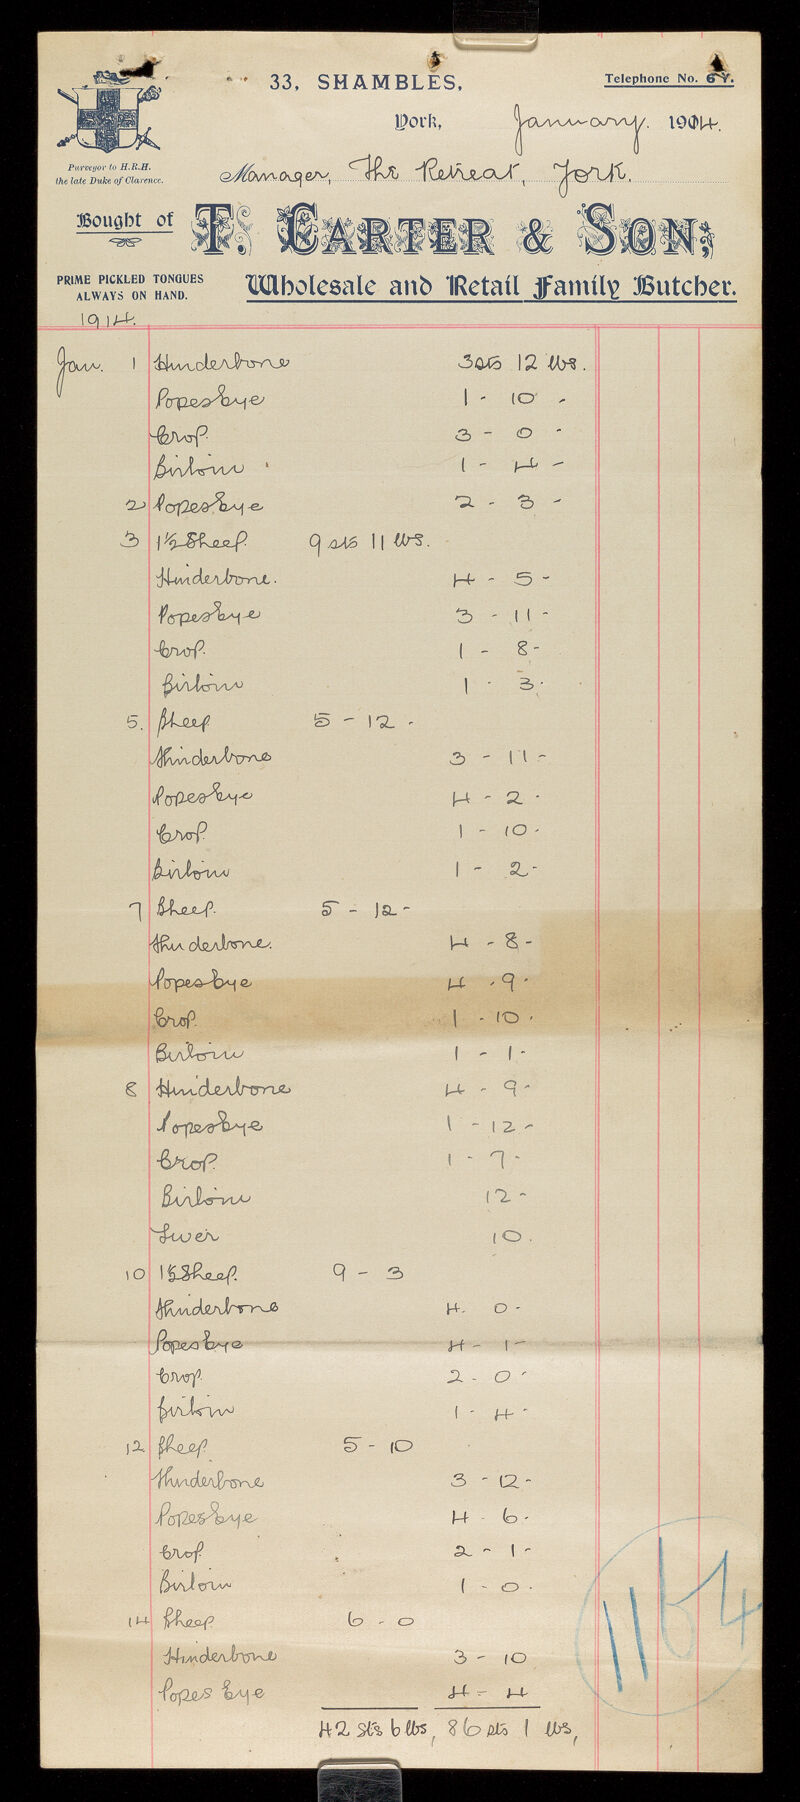 33, SHAMBLES,
Telephone No. 6Y.
York, January. 1914.
Purveyor to H.R.H.
the late Duke of Clarence.
Manager, The Retreat, York.
Bought of T. CARTER & SON,
PRIME PICKLED TONGUES
ALWAYS ON HAND.
Wholesale and Retail Family Butcher.
1914.
Jan. 1 Hinderbone 3 sts 12 lbs.
Popes Eye 1 - 10 -
Crop. 3 - 0 -
Sirloin 1 - 4 -
2 Popes Eye 2 - 3 -
3 1½ Sheep. 9 sts 11 lbs.
Hinderbone. 4 - 5 -
Popes Eye 3 - 11 -
Crop. 1 - 8 -
Sirloin 1 - 3 -
5. Sheep 5 - 12 -
Hinderbone 3 - 11 -
Popes Eye 4 - 2 -
Crop. 1 - 10 -
Sirloin 1 - 2 -
7 Sheep. 5 - 12 -
Hinderbone. 4 - 8 -
Popes Eye 4 - 9 -
Crop. 1 - 10 -
Sirloin 1 - 1 -
8 Hinderbone 4 - 9 -
Popes Eye 1 - 12 -
Crop. 1 - 7 -
Sirloin 12 -
Liver 10.
10 1½ Sheep. 9 - 3
Hinderbone 4. 0 -
Popes Eye 4 - 1 -
Crop. 2 - 0 -
Sirloin 1 - 4 -
12 Sheep. 5 - 10
Hinderbone 3 - 12 -
Popes Eye 4 - 6 -
Crop. 2 - 1 -
Sirloin 1 - 0 -
14 Sheep. 6 - 0
Hinderbone 3 - 10
Popes Eye 4 - 4
42 sts 6 lbs, 86 sts 1 lbs,
1164